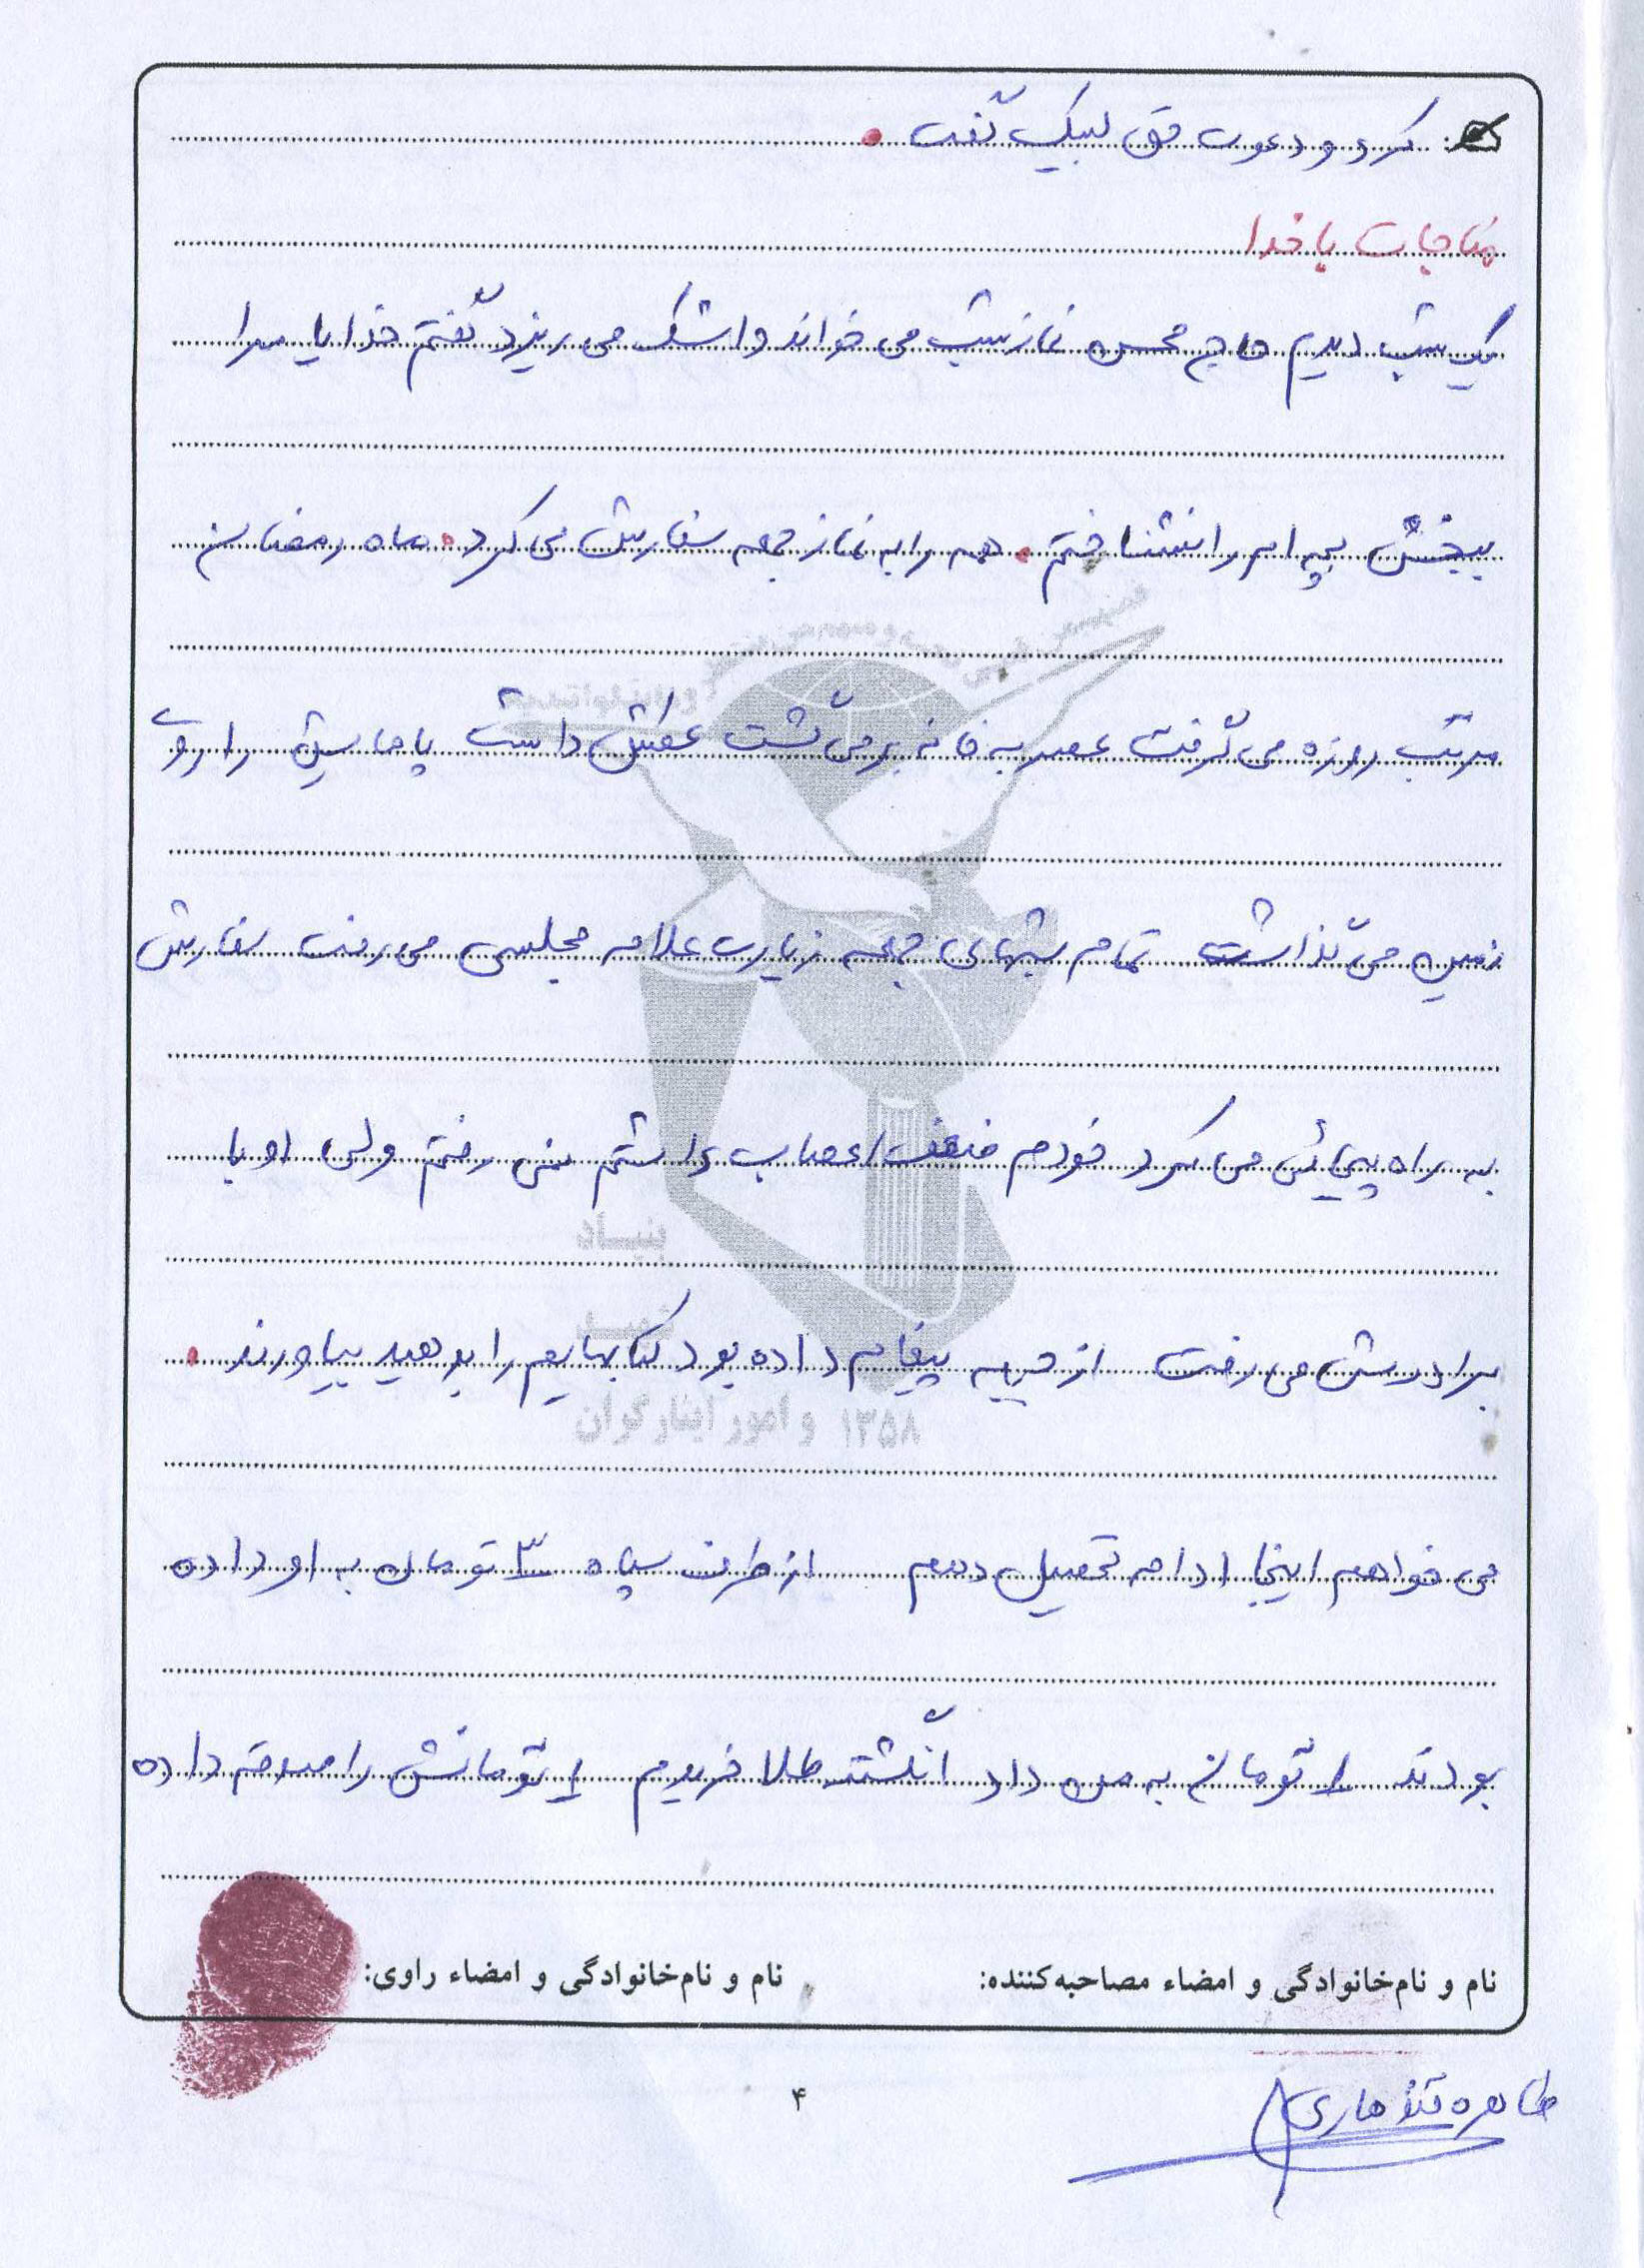 کرد و دعوت حق لبیک گفت.
مناجات با خدا
یک شب دیدم حاج محسن نماز شب می خواند و اشک می ریزد گفتم خدایا مرا
ببخش بچه ام را نشناختم. همه را به نماز جمعه سفارش می کرد. ماه رمضان
مرتب روزه می گرفت عصر به خانه برمی گشت عطش داشت پاهایش را روی
زمین می گذاشت تمام شبهای جمعه زیارت علامه مجلسی می رفت سفارش
به راه پیمائی می کرد خودم ضعف اعصاب داشتم نمی رفتم ولی او با
برادرش می رفت از جبهه پیغام داده بود کتابهایم را بدهید بیاورند.
می خواهم اینجا ادامه تحصیل دهم از طرف سپاه ۳ تومان به او داده
بودند ۱ تومان به من داد انگشتر طلا خریدم ۱ تومانش را صدقه داده
نام و نام‌خانوادگی و امضاء مصاحبه‌کننده:
نام و نام‌خانوادگی و امضاء راوی:
۴
طاهره
بنیاد
شهید
و امور ایثارگران ۱۳۵۸